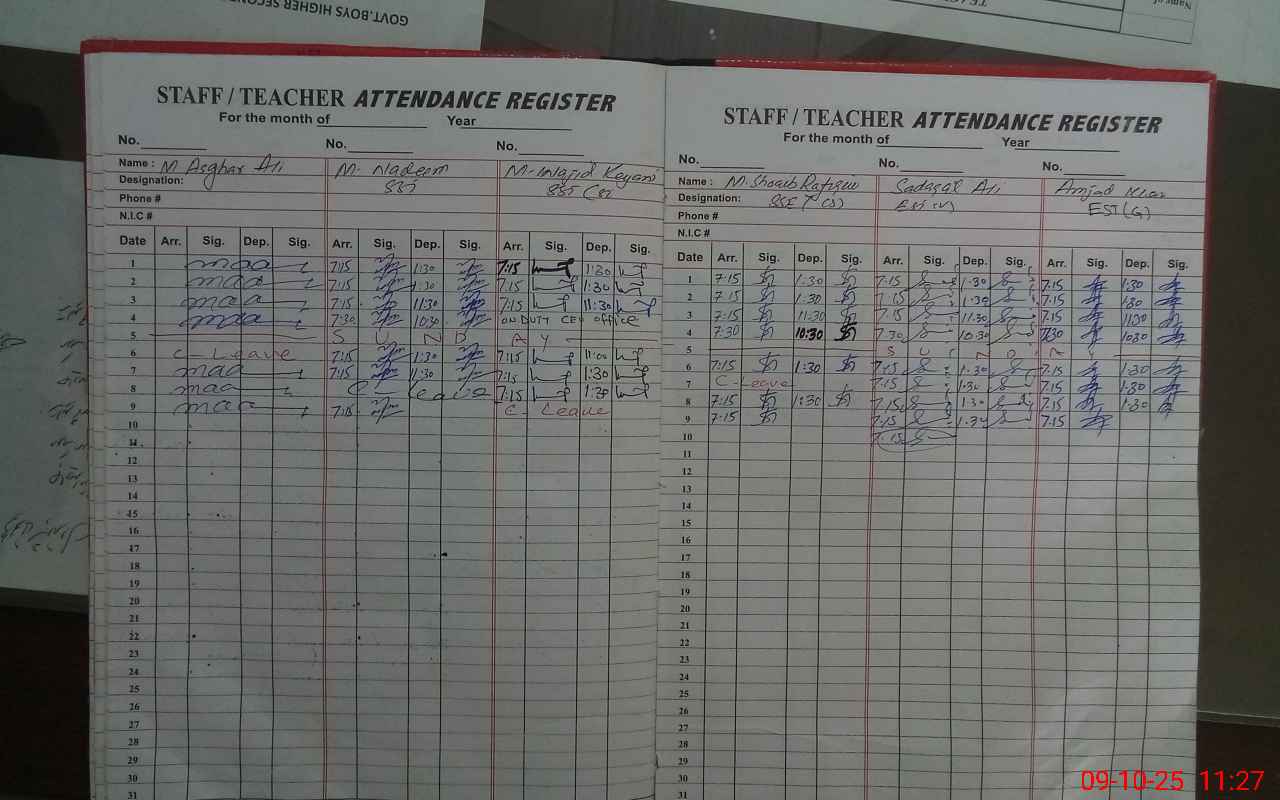 GOVT.BOYS HIGHER SECOND
Name of
STAFF / TEACHER ATTENDANCE REGISTER
For the month of Year
No. No. No.
Name : M Asghar Ali M. Nadeem M. Wajid Keyani
Designation: SST SST
Phone #
N.I.C #
Date Arr. Sig. Dep. Sig. Arr. Sig. Dep. Sig. Arr. Sig. Dep. Sig.
1 maa 7:15 1:30 7:15 1:30
2 maa 7:15 1:30 7:15 1:30
3 maa 7:15 11:30 7:15 11:30
4 maa 7:30 10:30 ON DUTY CEO office
5 S U N D A Y
6 C-Leave 7:15 1:30 7:15 11:00
7 maa 7:15 1:30 7:15 1:30
8 maa C Leave 7:15 1:30
9 maa 7:15 C. Leave
10
11
12
13
14
15
16
17
18
19
20
21
22
23
24
25
26
27
28
29
30
31
STAFF / TEACHER ATTENDANCE REGISTER
For the month of Year
No. No. No.
Name : M. Shoaib Rafique Sadaqat Ali Amjad
Designation: SSE EST (G)
Phone #
N.I.C #
Date Arr. Sig. Dep. Sig. Arr. Sig. Dep. Sig. Arr. Sig. Dep. Sig.
1 7:15 1:30 7:15 1:30 7:15 1:30
2 7:15 1:30 7:15 1:30 7:15 1:30
3 7:15 11:30 7:15 11:30 7:15 11:30
4 7:30 10:30 7:30 10:30 7:30 10:30
5 S U N D A Y
6 7:15 1:30 7:15 1:30 7:15 1:30
7 C-Leave 7:15 1:30 7:15 1:30
8 7:15 1:30 7:15 1:30 7:15 1:30
9 7:15 7:15 1:30 7:15
10 7:15
11
12
13
14
15
16
17
18
19
20
21
22
23
24
25
26
27
28
29
30
31
09-10-25 11:27